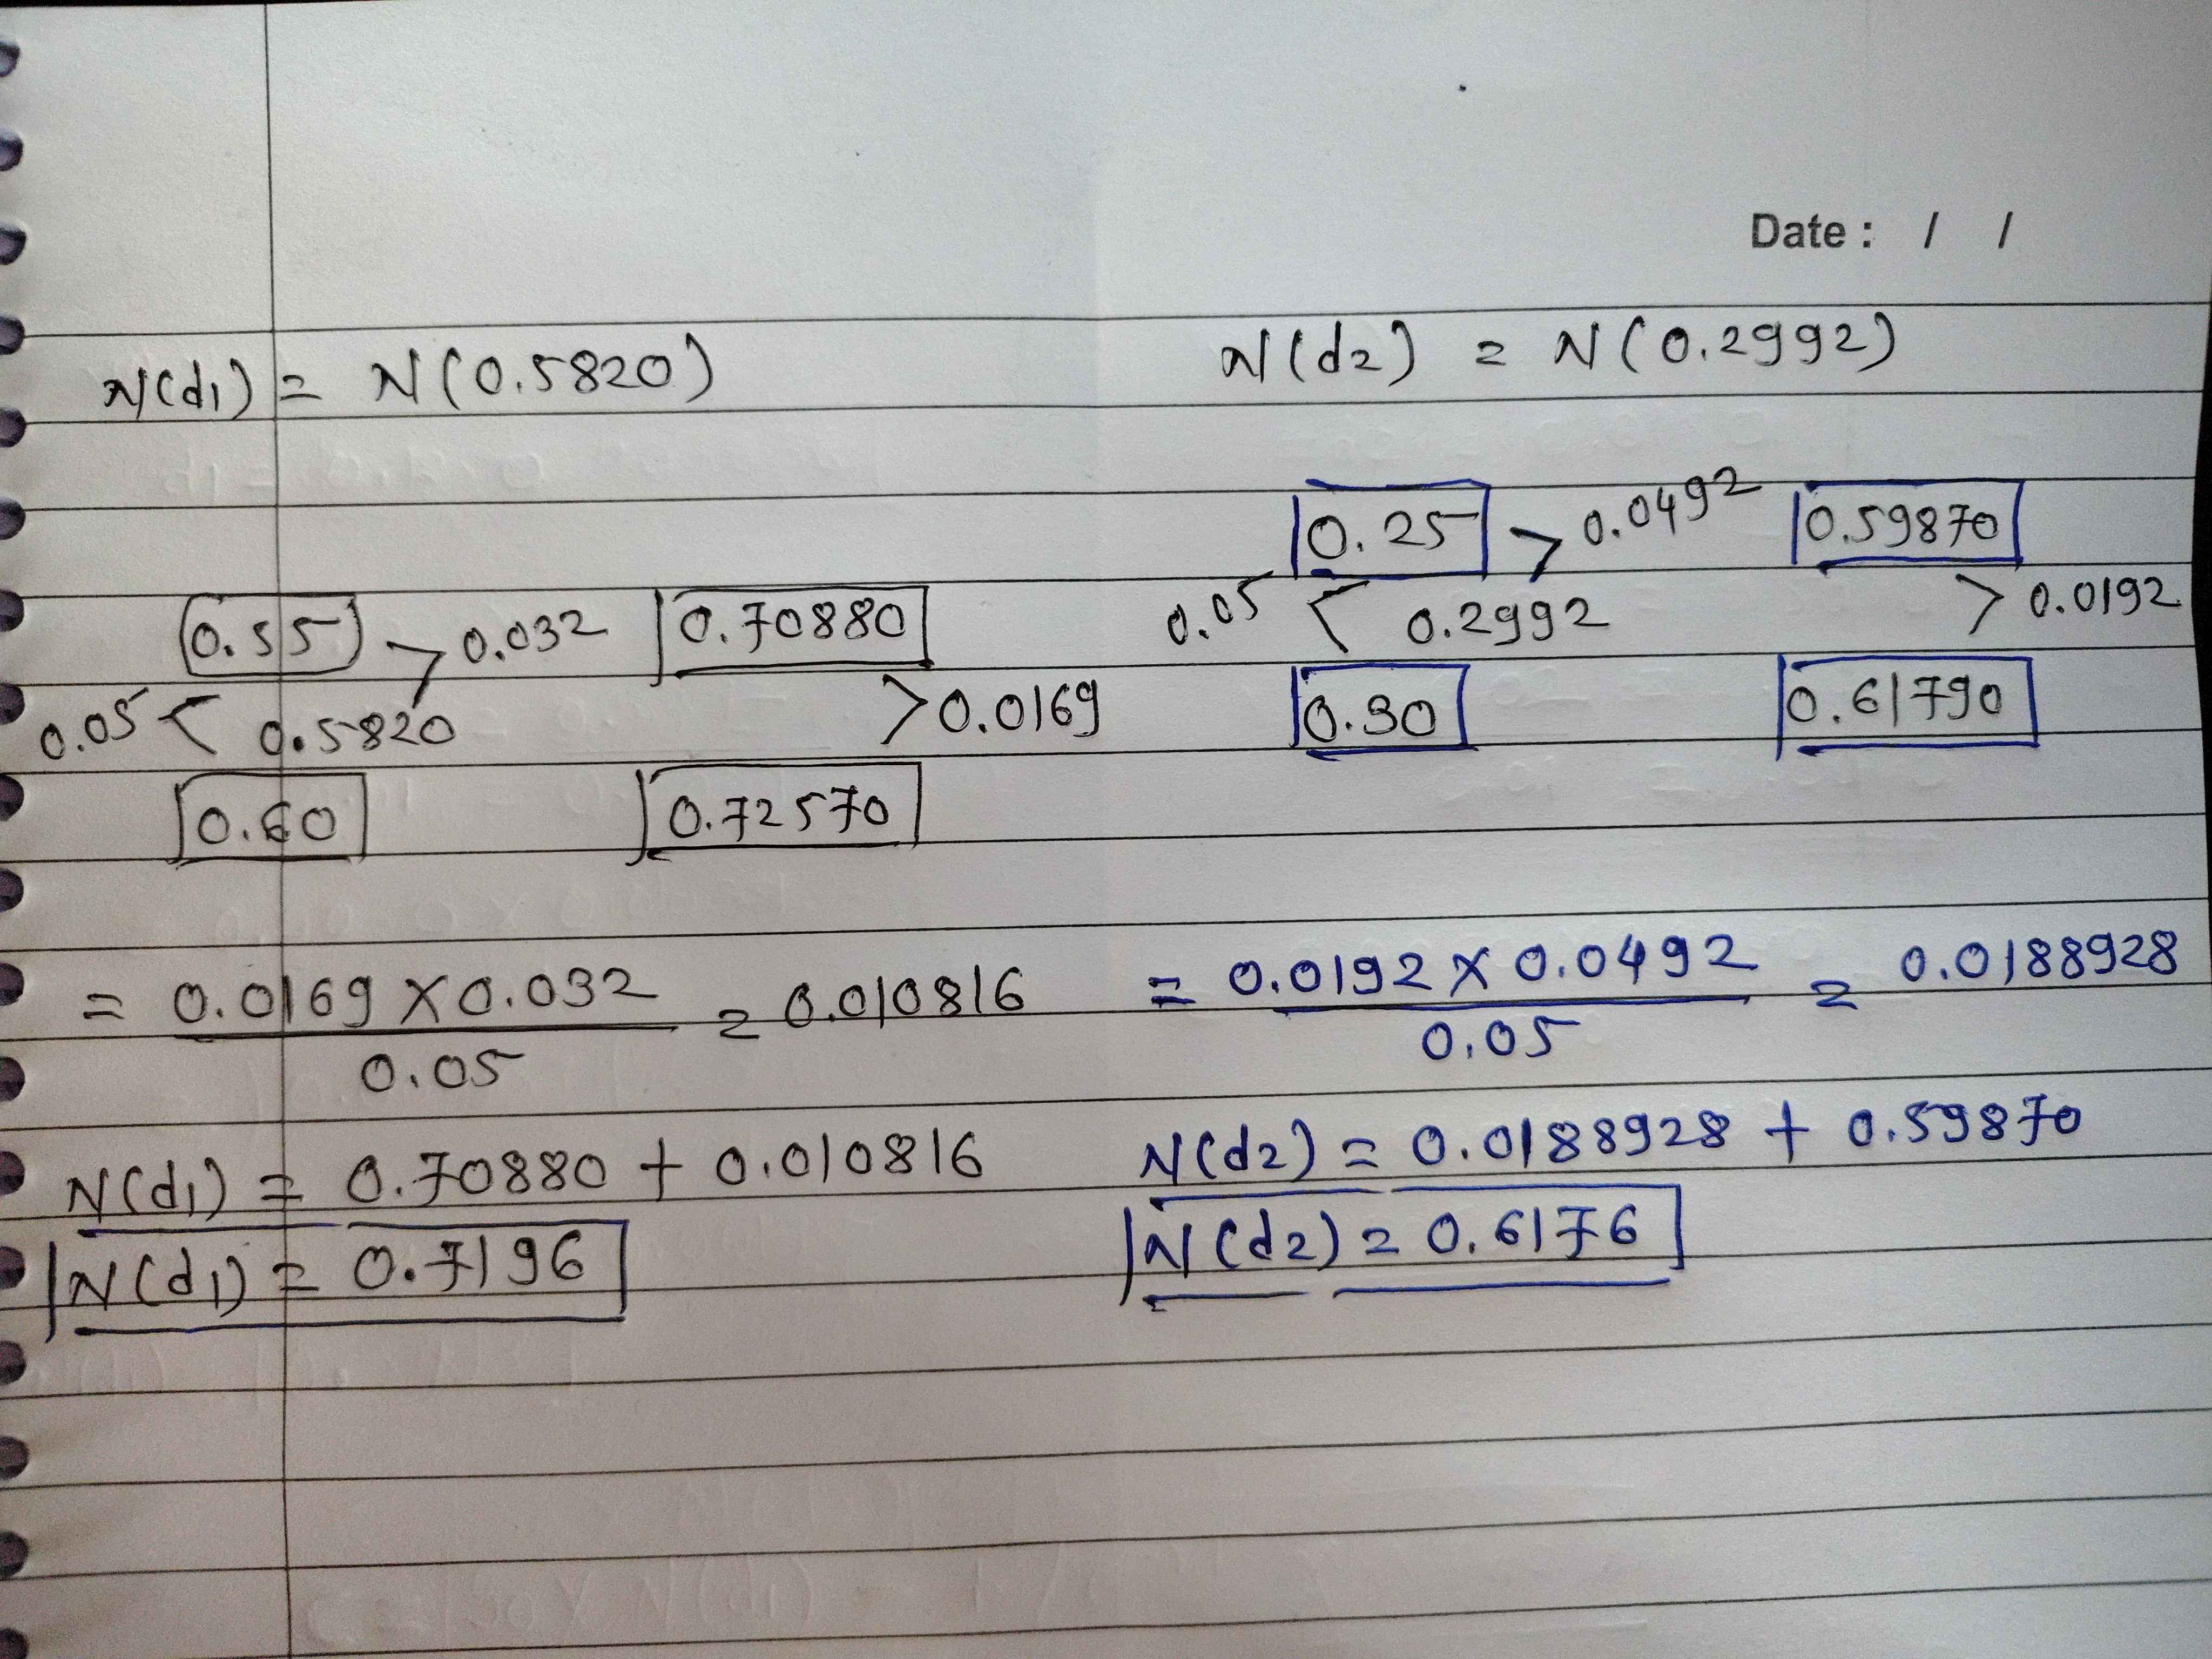 Date : / /
N(d1) = N(0.5820)
0.55 > 0.032 0.70880
0.05 < 0.5820 > 0.0169
0.60 0.72570
= 0.0169 X 0.032 / 0.05 = 0.010816
N(d1) = 0.70880 + 0.010816
N(d1) = 0.7196
N(d2) = N(0.2992)
0.25 > 0.0492 0.59870
0.05 < 0.2992 > 0.0192
0.30 0.61790
= 0.0192 X 0.0492 / 0.05 = 0.0188928
N(d2) = 0.0188928 + 0.59870
N(d2) = 0.6176